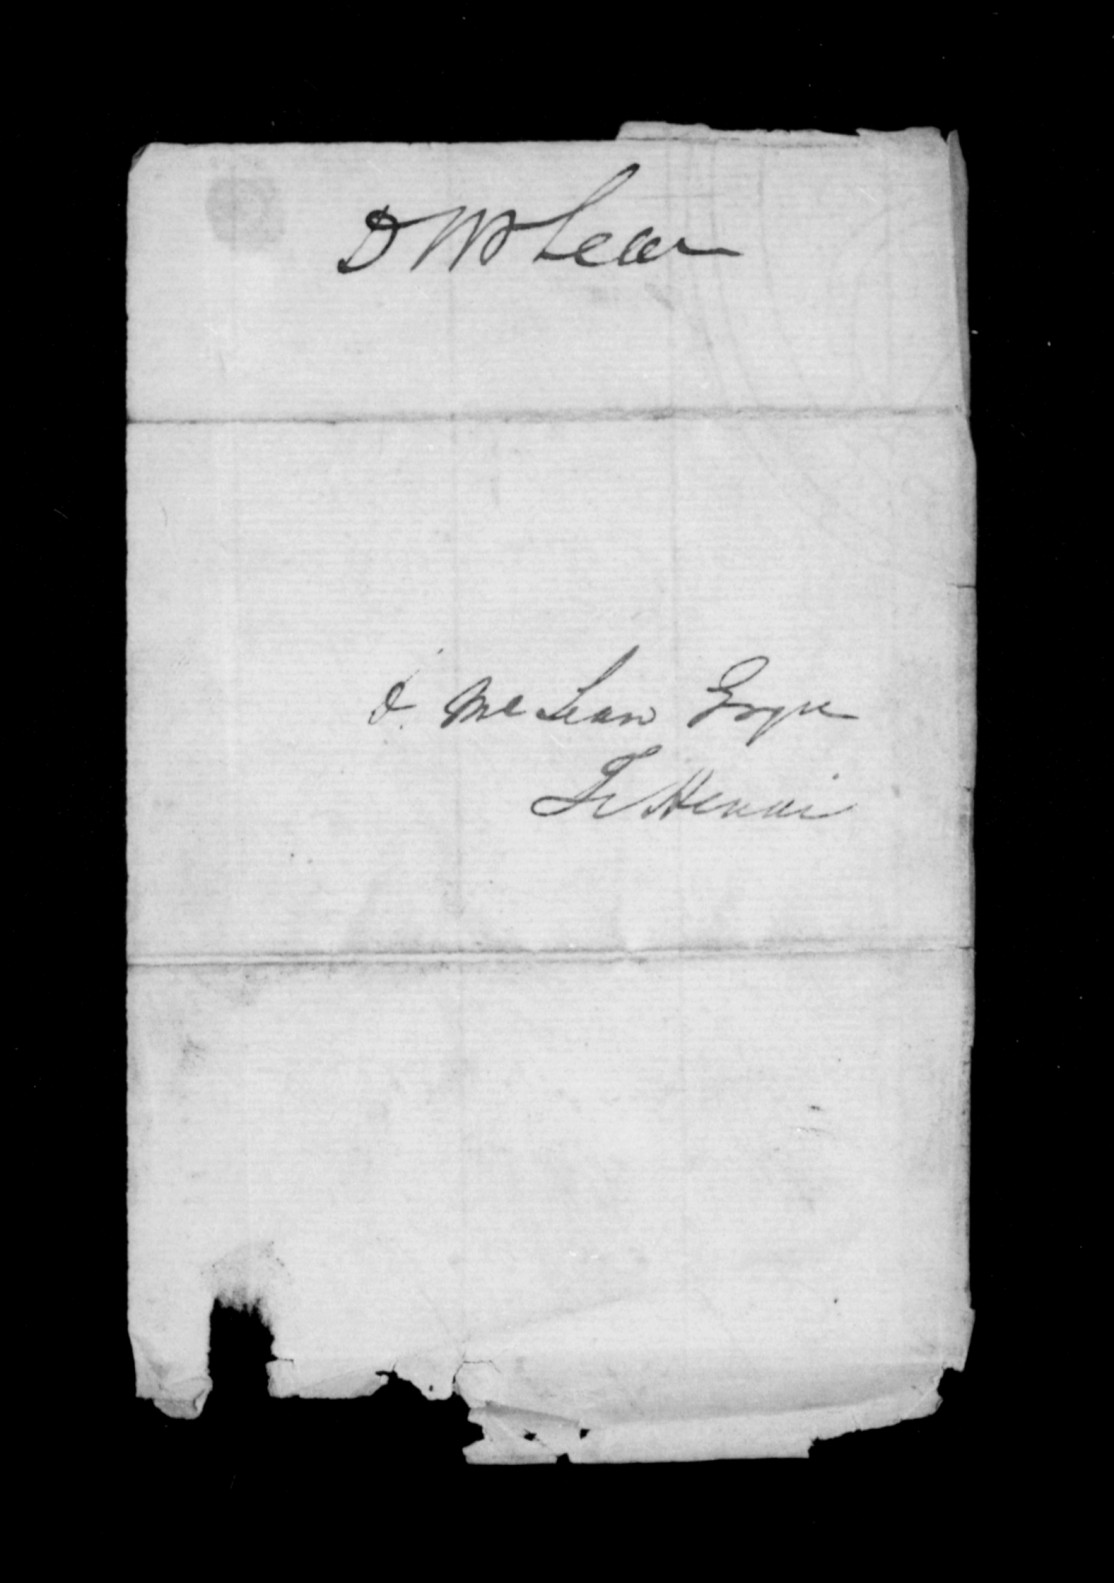 D McLean
D. McLean Esqre
Te Henui